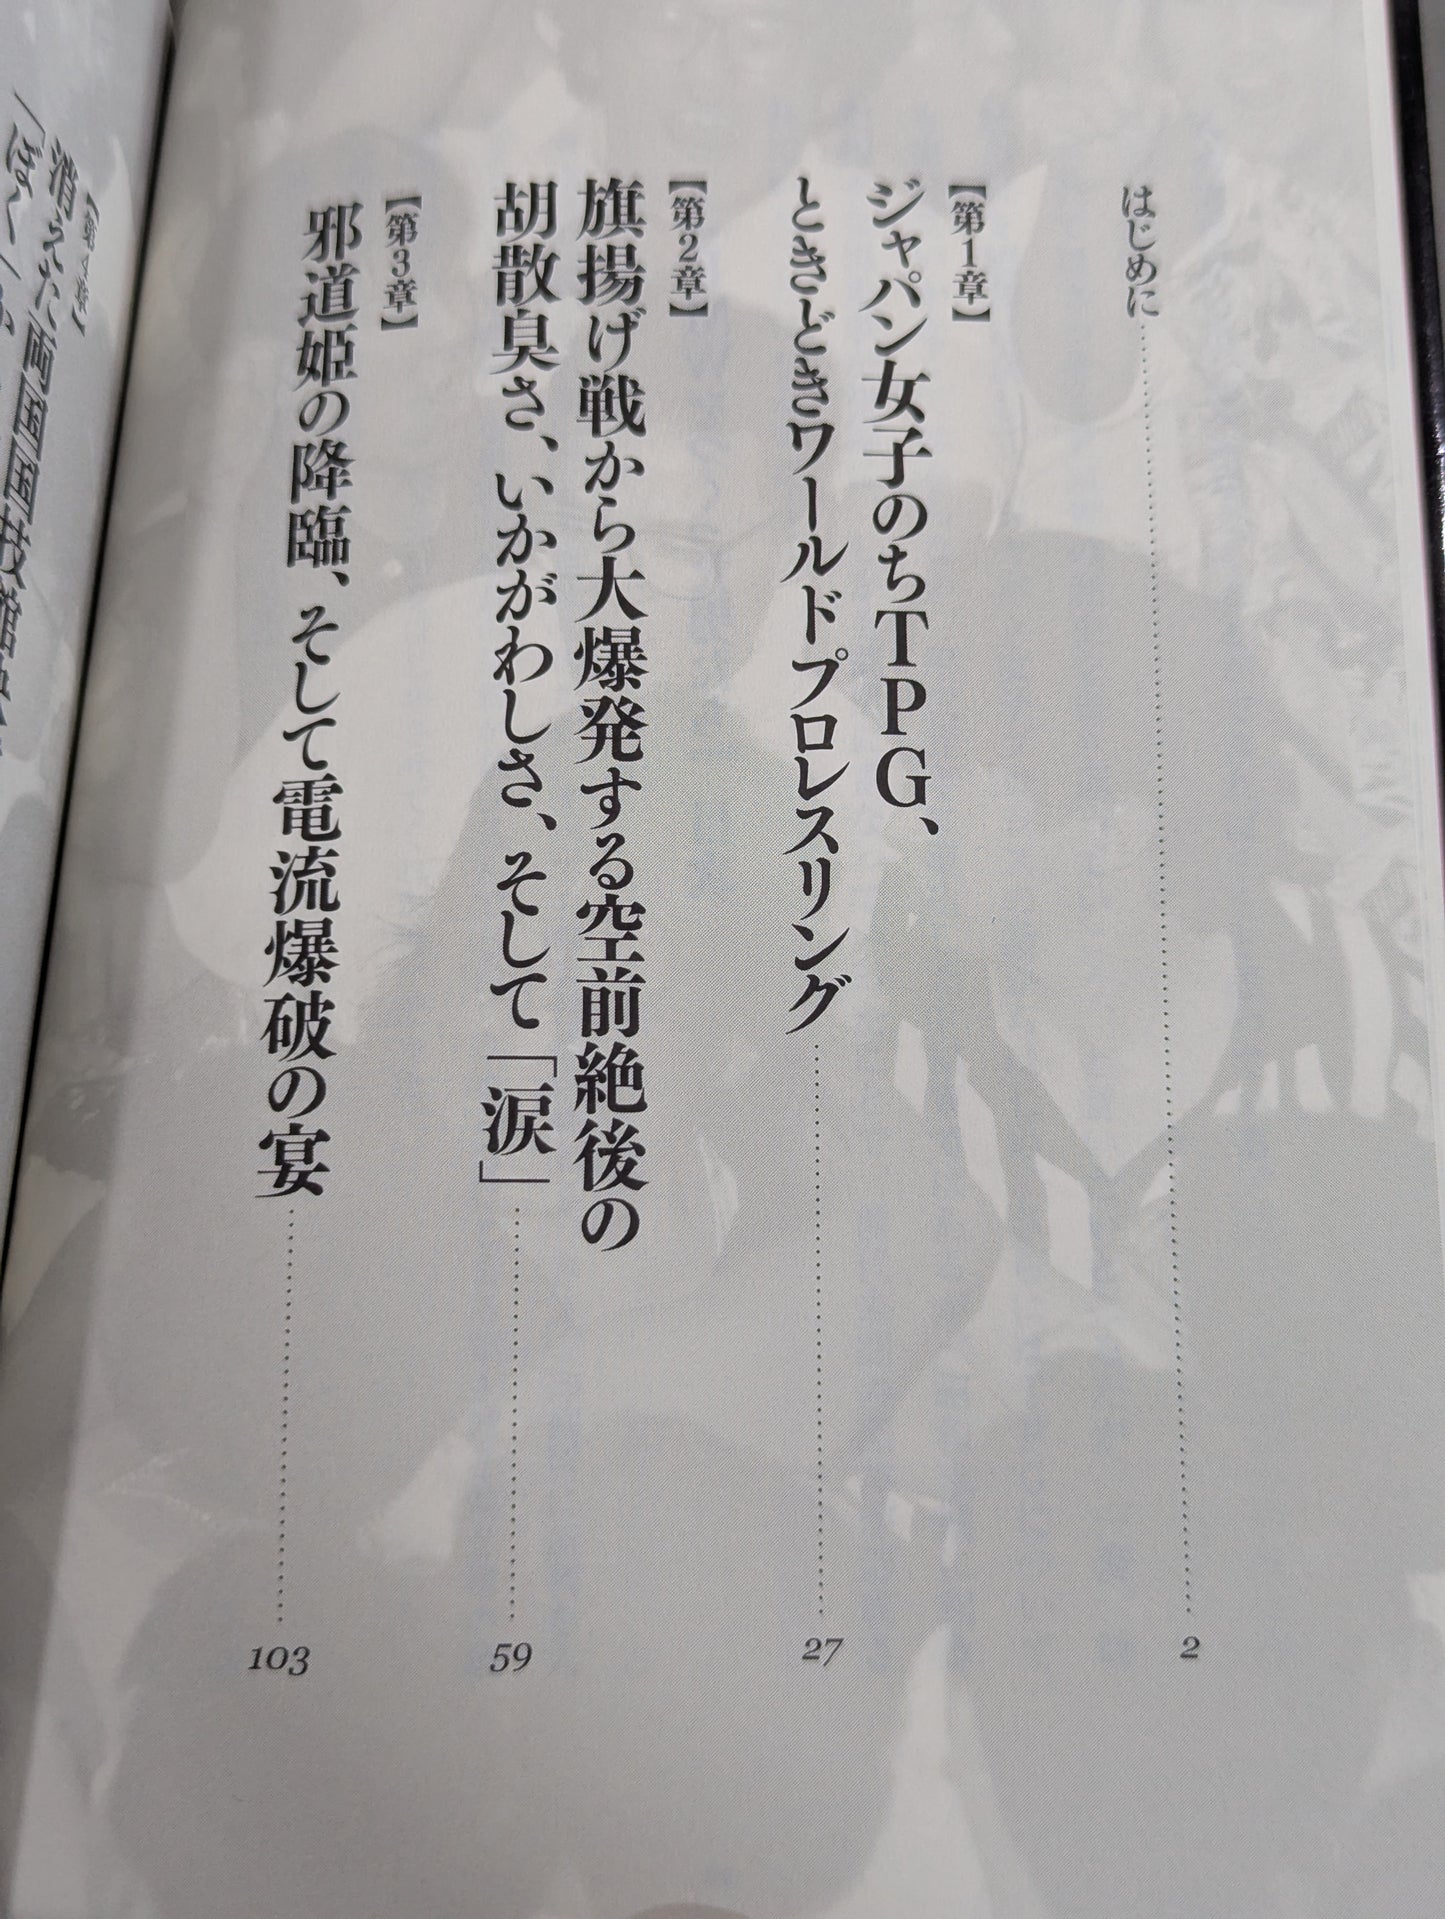 はじめに 2
【第1章】
ジャパン女子のちTPG、
ときどきワールドプロレスリング 27
【第2章】
旗揚げ戦から大爆発する空前絶後の
胡散臭さ、いかがわしさ、そして「涙」 59
【第3章】
邪道姫の降臨、そして電流爆破の宴 103
【第4章】
消えた両国国技館
「ぼく